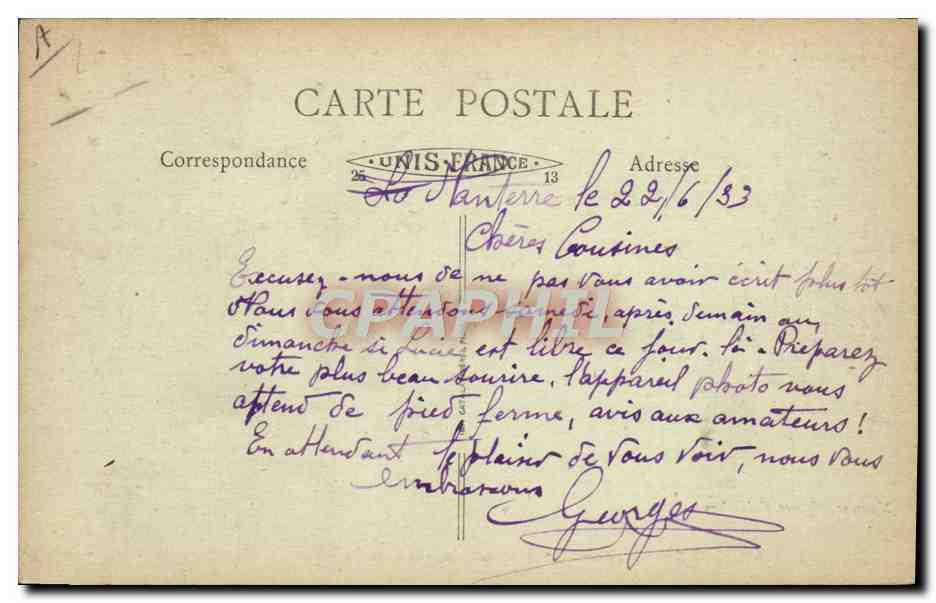 A
CARTE POSTALE
Correspondance
UNIS-FRANCE
Adresse
25
13
Nanterre le 22/6/33
Chères Cousines
Excusez-nous de ne pas vous avoir écrit plus tôt
Nous vous attendons samedi, après demain ou
dimanche si Lucie est libre ce jour-là - Préparez
votre plus beau sourire, l'appareil photo vous
attend de pied ferme, avis aux amateurs !
En attendant le plaisir de vous voir, nous vous
embrassons
Georges
CPAPHIL